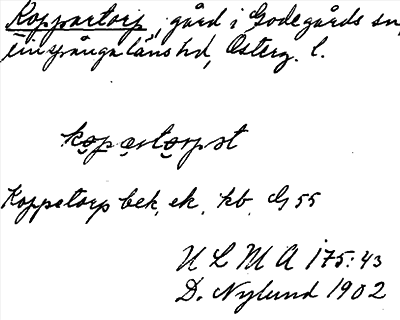 Koppartorp, gård i Godegårds sn,
Finspånga läns hd, Österg. l.
kopartorpst
Koppetorp bek, ek, kb, G 55
ULMA 175:43
D. Nylund 1902